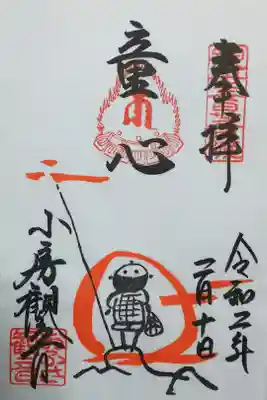 奉拝
童心
令和二年
二月十日
小房観音